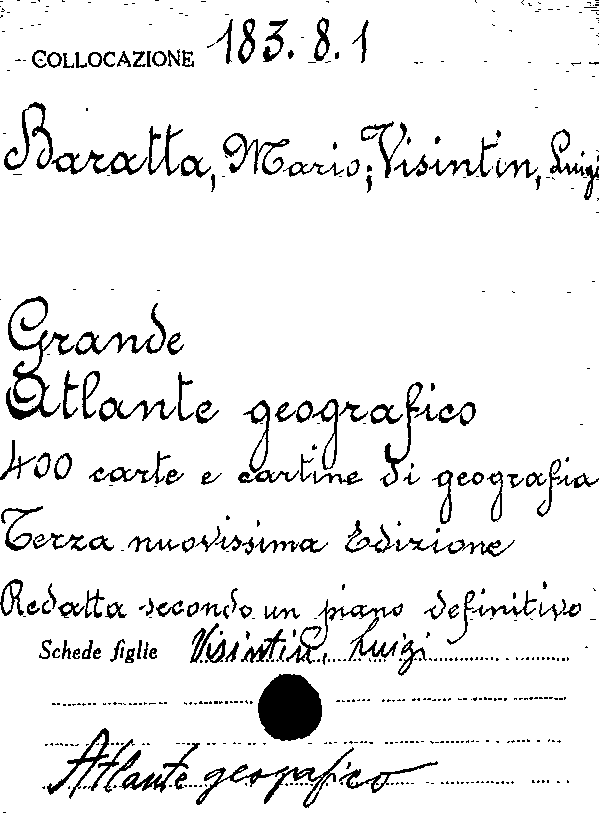 COLLOCAZIONE 183.8.1
Baratta, Mario; Visintin, Luigi
Grande
Atlante geografico
400 carte e cartine di geografia
Terza nuovissima Edizione
Redatta secondo un piano definitivo
Schede figlie Visintin, Luigi
Atlante geografico